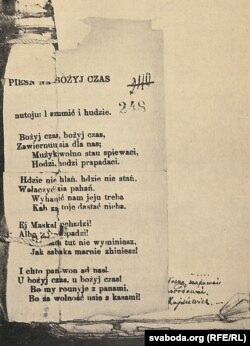 PIEŚŃ NA BOŻYJ CZAS
248
nutoju: I szumić i hudzie.
Bożyj czas, bożyj czas,
Zawiernuusia dla nas;
Mużyk wolno stau śpiewaci,
Hodzi, hodzi prapadaci.
Hdzie nie hlań, hdzie nie stań,
Wałaczyś pahań.
Wyhanić nam jeju treba
Kab za toje dastać nieba.
Ej Maskal pchadzi!
tut nie wyminiesz,
Jak sabaka marnie zhiniesz!
I chto pan won ad nas!
U bożyj czas, u bożyj czas!
Bo my rounyje z panami,
Bo za wolność usie s kasami!
svaboda.org (RFE/RL)